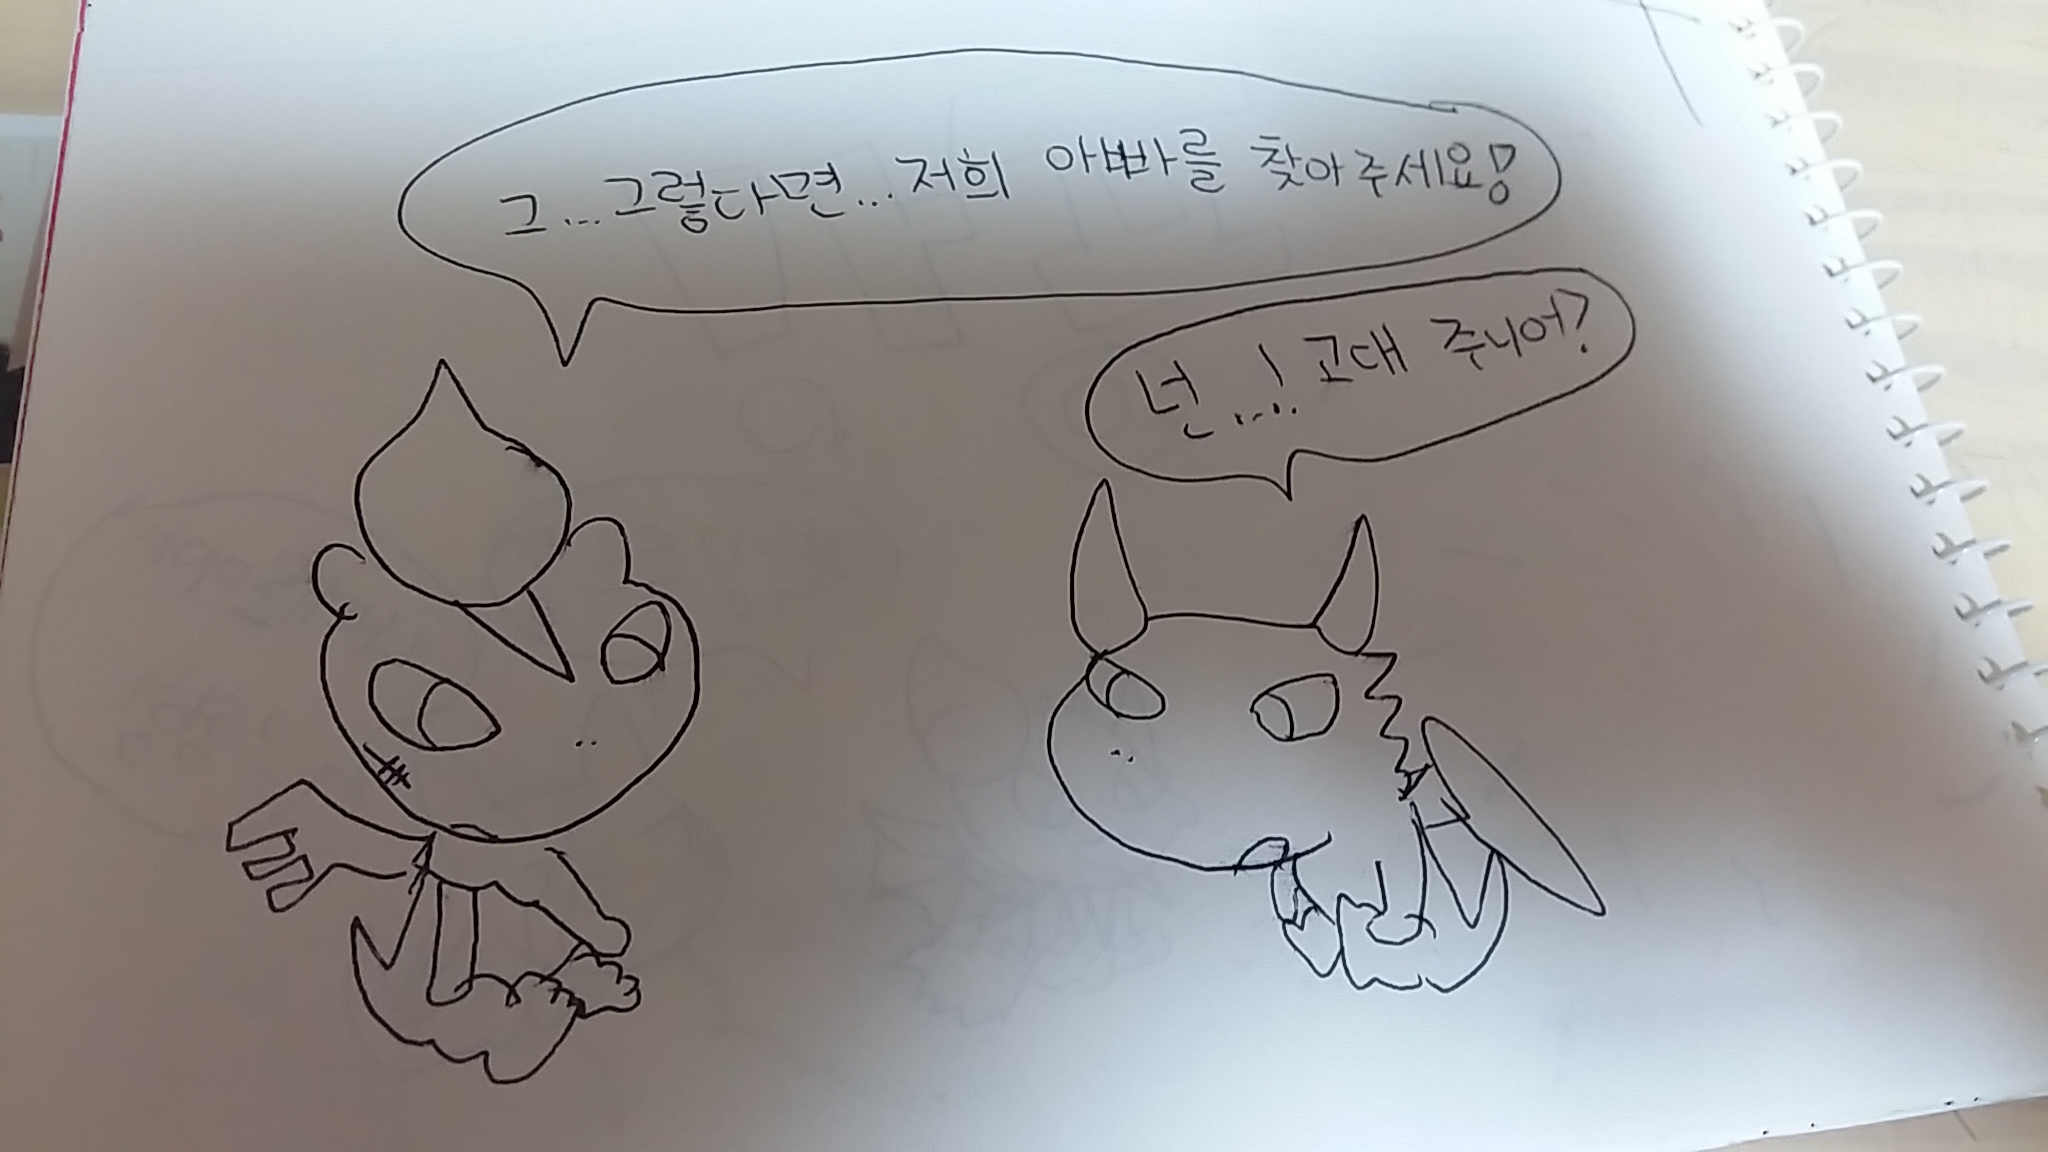 그...그렇다면...저희 아빠를 찾아주세요!
넌...! 고대 주니어?